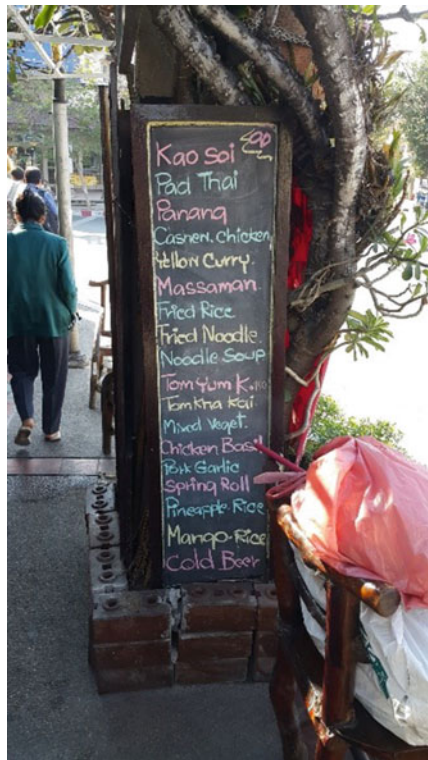 Kao Soi
Pad Thai
Panang
Cashen. chicken
Yellow Curry.
Massaman.
Fried Rice
Fried Noodle.
Noodle Soup
Tom Yum K
Tom kha Kai.
Mixed Veget.
Chicken Basil
Pork Garlic
Spring Roll
Pineapple. Rice
Mango-Rice
Cold Beer